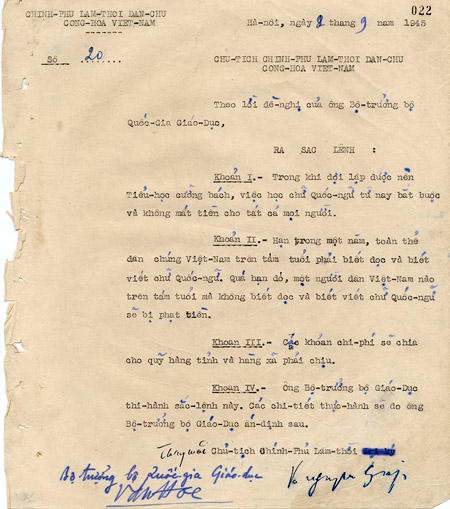 022
CHINH-PHU LAM-THOI DAN-CHU
CONG-HOA VIET-NAM
Hà-nội, ngày 8 tháng 9 năm 1945
Số 20
CHU-TICH CHINH-PHU LAM-THOI DAN-CHU
CONG-HOA VIET-NAM
Theo lời đề-nghị của ông Bộ-trưởng bộ
Quốc-Gia Giáo-Dục,
RA SAC LỆNH :
Khoản I.- Trong khi đợi lập được nền
Tiểu-học cưỡng bách, việc học chữ Quốc-ngữ từ nay bắt buộc
và không mất tiền cho tất cả mọi người.
Khoản II.- Hạn trong một năm, toàn thể
dân chúng Việt-Nam trên tám tuổi phải biết đọc và biết
viết chữ Quốc-ngữ. Quá hạn đó, một người dân Việt-Nam nào
trên tám tuổi mà không biết đọc và biết viết chữ Quốc-ngữ
sẽ bị phạt tiền.
Khoản III.- Các khoản chi-phí sẽ chia
cho quỹ hàng tỉnh và hàng xã phải chịu.
Khoản IV.- Ông Bộ-trưởng bộ Giáo-Dục
thi-hành sắc-lệnh này. Các chi-tiết thực-hành sẽ do ông
Bộ-trưởng bộ Giáo-Dục ấn-định sau.
Thay mặt Chủ-tịch Chính-Phủ Lâm-thời
Bộ trưởng bộ Quốc-gia Giáo-dục